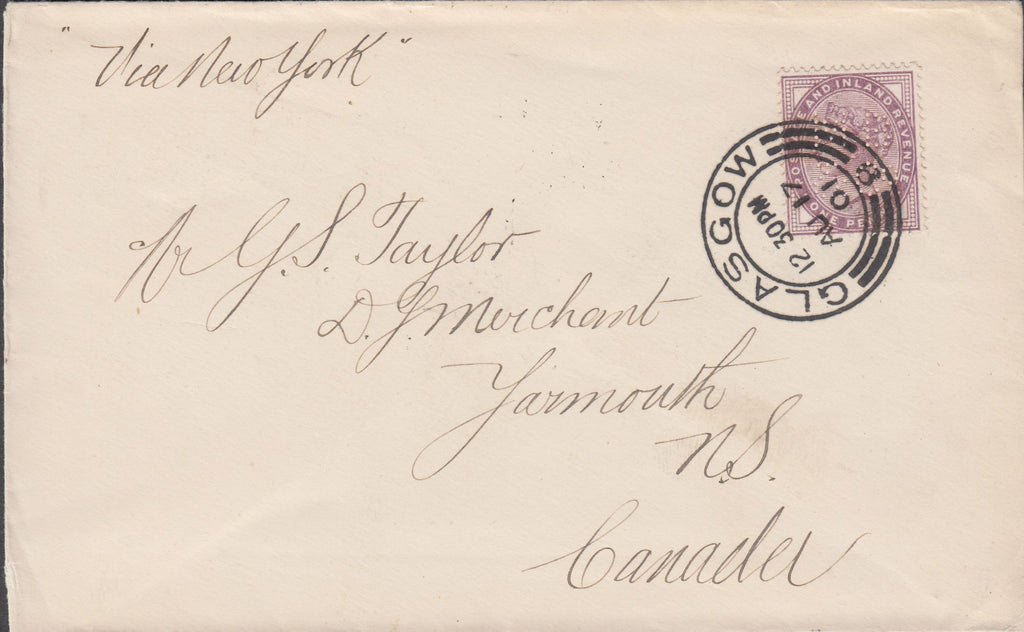 "Via New York"
POSTAGE AND INLAND REVENUE
ONE PENNY
GLASGOW
12 30PM
AU 17
01
8
Mr G.S. Taylor
D. G Merchant
Yarmouth
N.S.
Canada